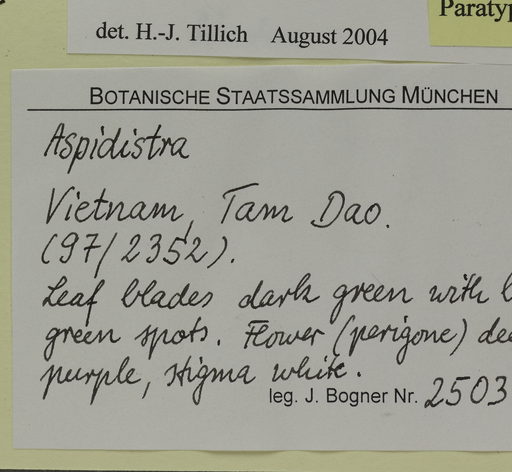 Paratyp
det. H.-J. Tillich August 2004
BOTANISCHE STAATSSAMMLUNG MÜNCHEN
Aspidistra
Vietnam, Tam Dao.
(97/2352).
Leaf blades dark green with
green spots. Flower (perigone) dee
purple, stigma white.
leg. J. Bogner Nr. 2503